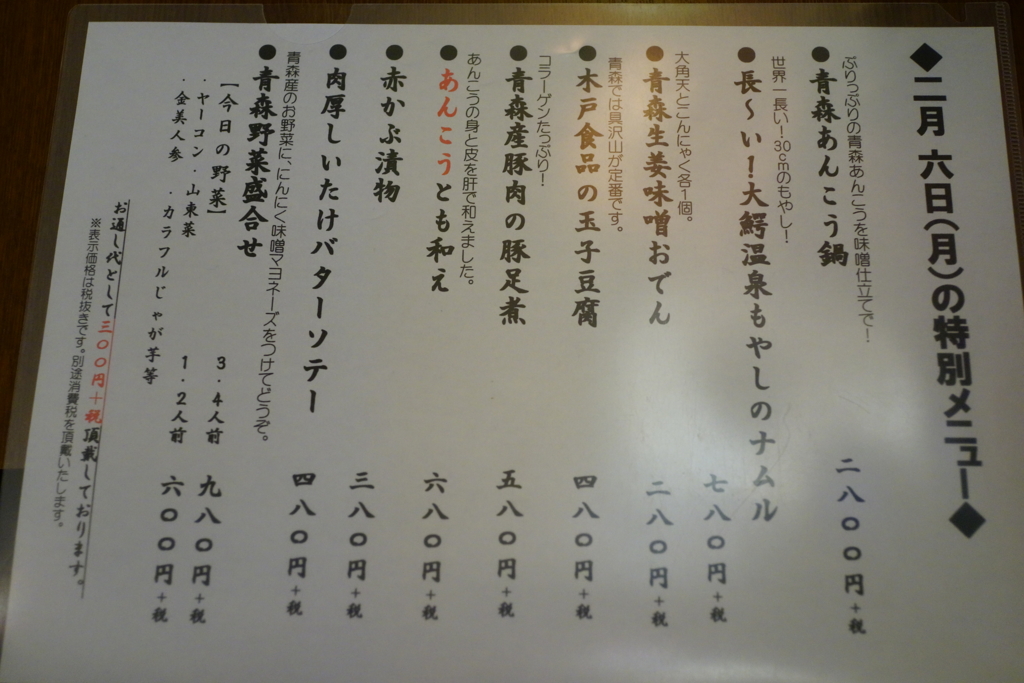 ◆二月 六日(月)の特別メニュー◆
ぷりっぷりの青森あんこうを味噌仕立てで!
●青森あんこう鍋 二八〇〇円+税
世界一長い!30cmのもやし!
●長〜い!大鰐温泉もやしのナムル 七八〇円+税
大角天とこんにゃく各1個。
●青森生姜味噌おでん 二八〇円+税
青森では具沢山が定番です。
●木戸食品の玉子豆腐 四八〇円+税
コラーゲンたっぷり!
●青森産豚肉の豚足煮 五八〇円+税
あんこうの身と皮を肝で和えました。
●あんこうとも和え 六八〇円+税
●赤かぶ漬物 三八〇円+税
●肉厚しいたけバターソテー 四八〇円+税
青森産のお野菜に、にんにく味噌マヨネーズをつけてどうぞ。
●青森野菜盛合せ
【今日の野菜】 3・4人前 九八〇円+税
・ヤーコン ・山東菜 1・2人前 六〇〇円+税
・金美人参 ・カラフルじゃが芋等
お通し代として三〇〇円+税頂戴しております。
※表示価格は税抜きです。別途消費税を頂戴いたします。